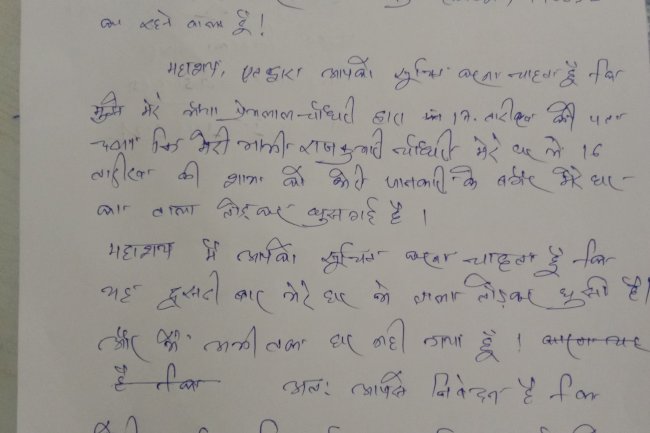 का रहने वाला हूँ !
महाशय, एतद्वारा आपको सूचित करना चाहता हूँ कि
मुझे मेरे चाचा प्रेमलाल चौधरी द्वारा 17 तारीख को पता
चला कि मेरी भाभी राजकुमारी चौधरी मेरे घर में 16
तारीख की शाम को मेरी जानकारी के बगैर मेरे घर
का ताला तोड़कर घुस गई है ।
महाशय मैं आपको सूचित करना चाहता हूँ कि
यह दूसरी बार मेरे घर में ताला तोड़कर घुसी है।
और मैं अभी तक घर नहीं गया हूँ !
है कि अतः आपसे निवेदन है कि